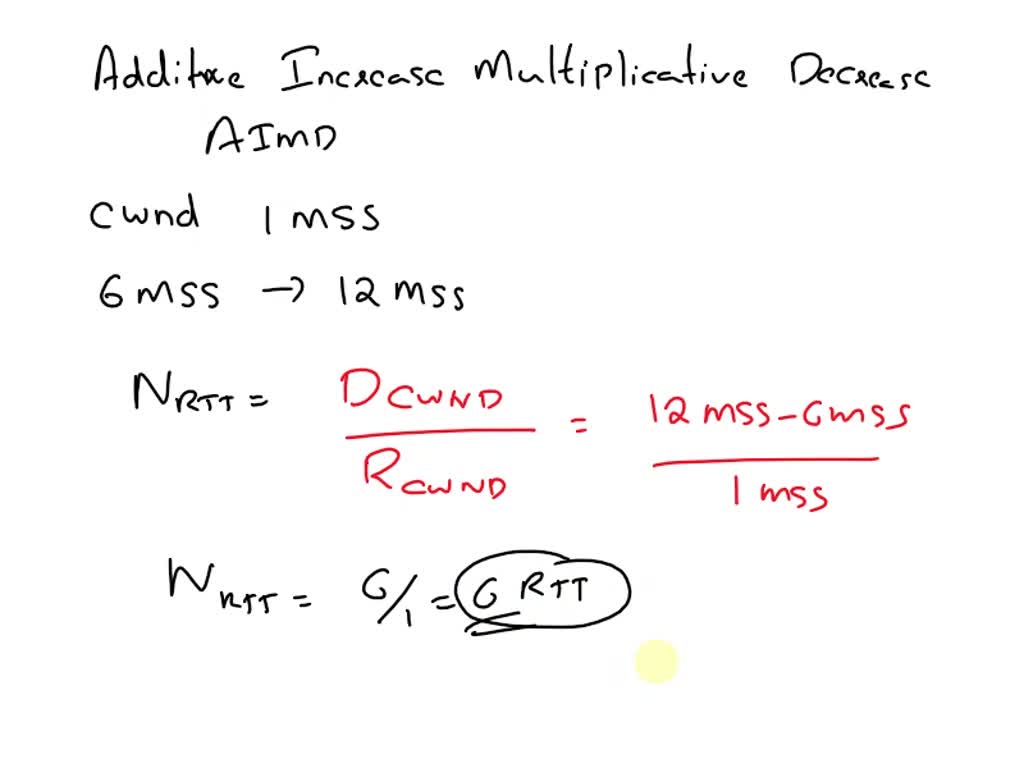 Additive Increase Multiplicative Decrease
AIMD
cwnd 1 mss
6 mss → 12 mss
N_RTT = D_CWND / R_CWND = 12 mss - 6 mss / 1 mss
N_RTT = 6/1 = 6 RTT